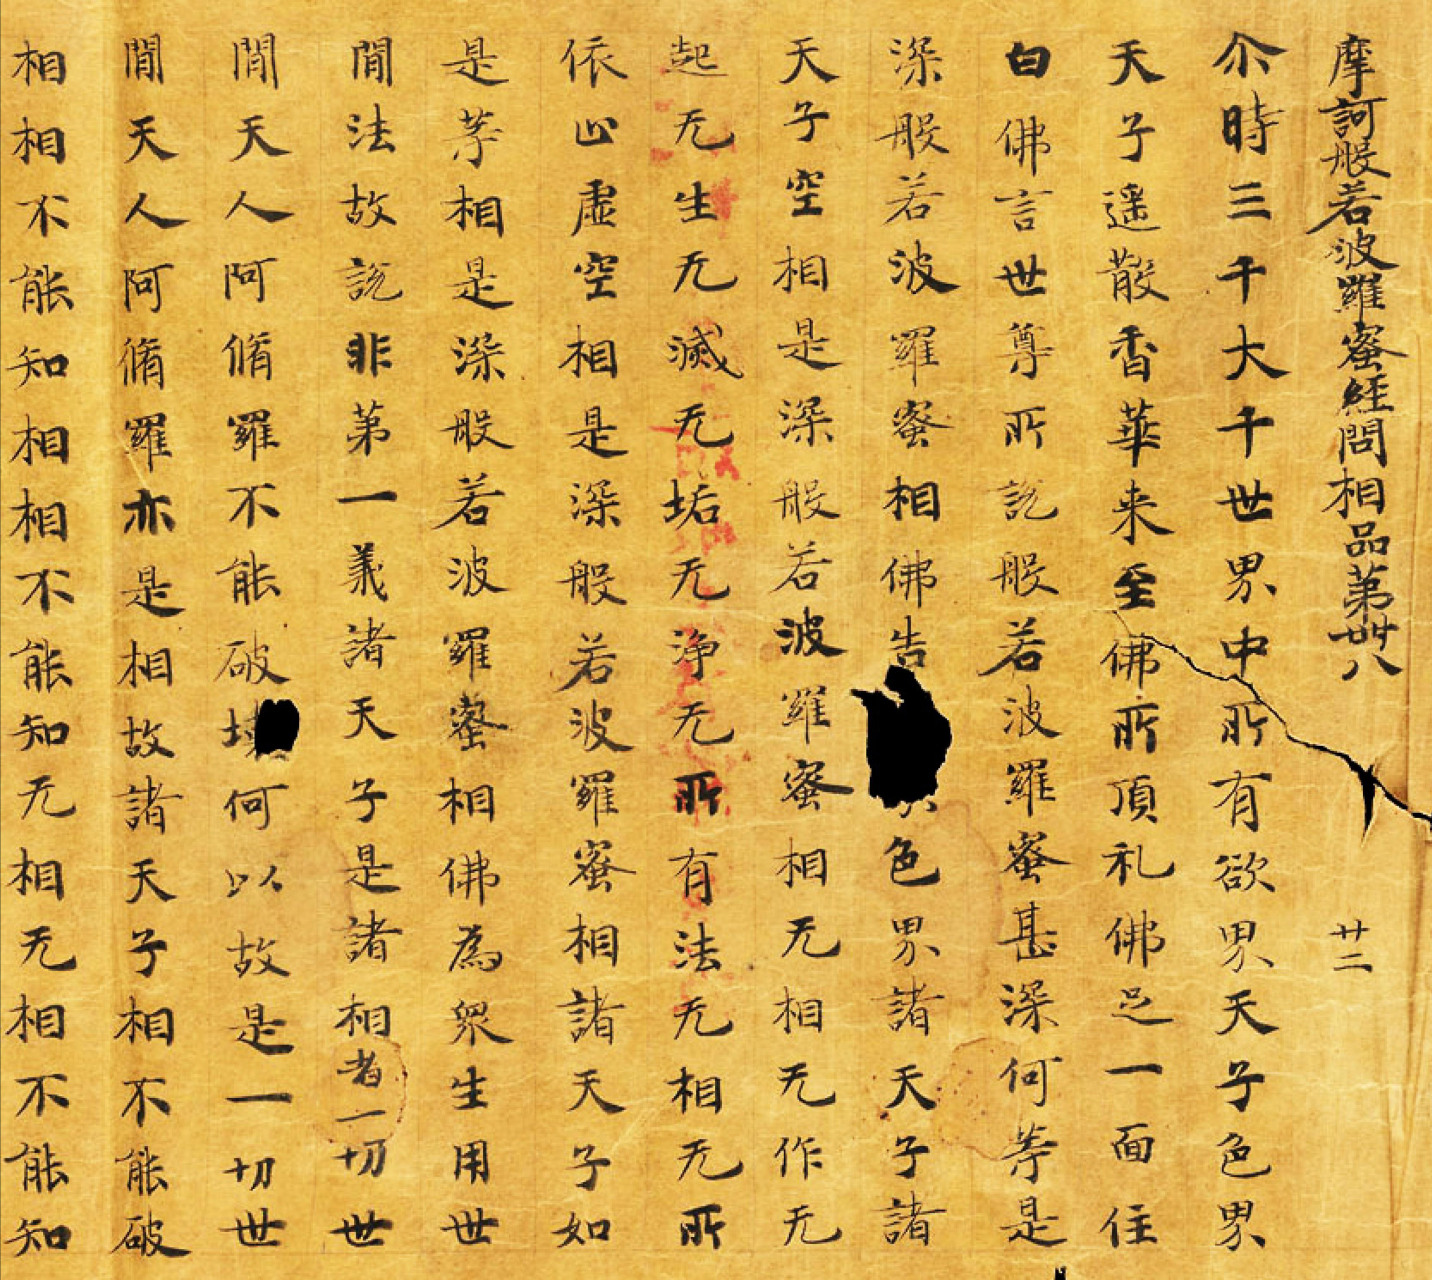 摩訶般若波羅蜜經問相品第卌八 廿二
尒時三千大千世界中所有欲界天子色界
天子遥散香華来至佛所頂礼佛足一面住
白佛言世尊所說般若波羅蜜甚深何等是
深般若波羅蜜相佛告色界諸天子諸
天子空相是深般若波羅蜜相无相无作无
起无生无滅无垢无净无所有法无相无所
依止虛空相是深般若波羅蜜相諸天子如
是等相是深般若波羅蜜相佛為眾生用世
間法故說非第一義諸天子是諸相者一切世
間天人阿脩羅不能破何以故是一切世
間天人阿脩羅亦是相故諸天子相不能破
相相不能知相相不能知无相无相不能知